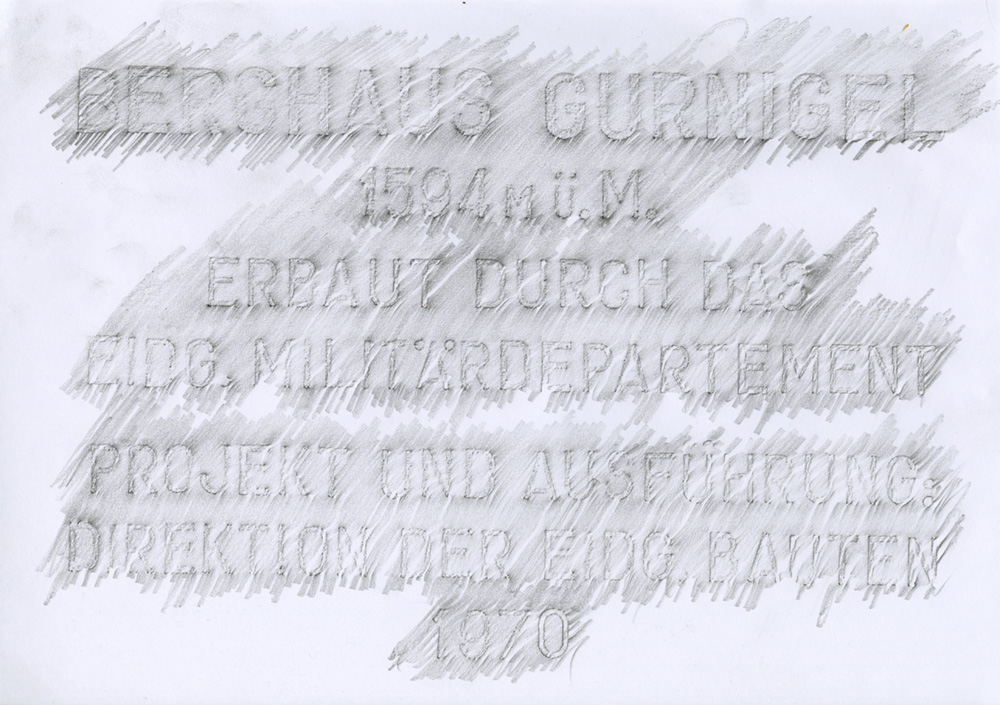 BERGHAUS GURNIGEL
1594 M ü. M.
ERBAUT DURCH DAS
EIDG. MILITÄRDEPARTEMENT
PROJEKT UND AUSFÜHRUNG:
DIREKTION DER EIDG. BAUTEN
1970